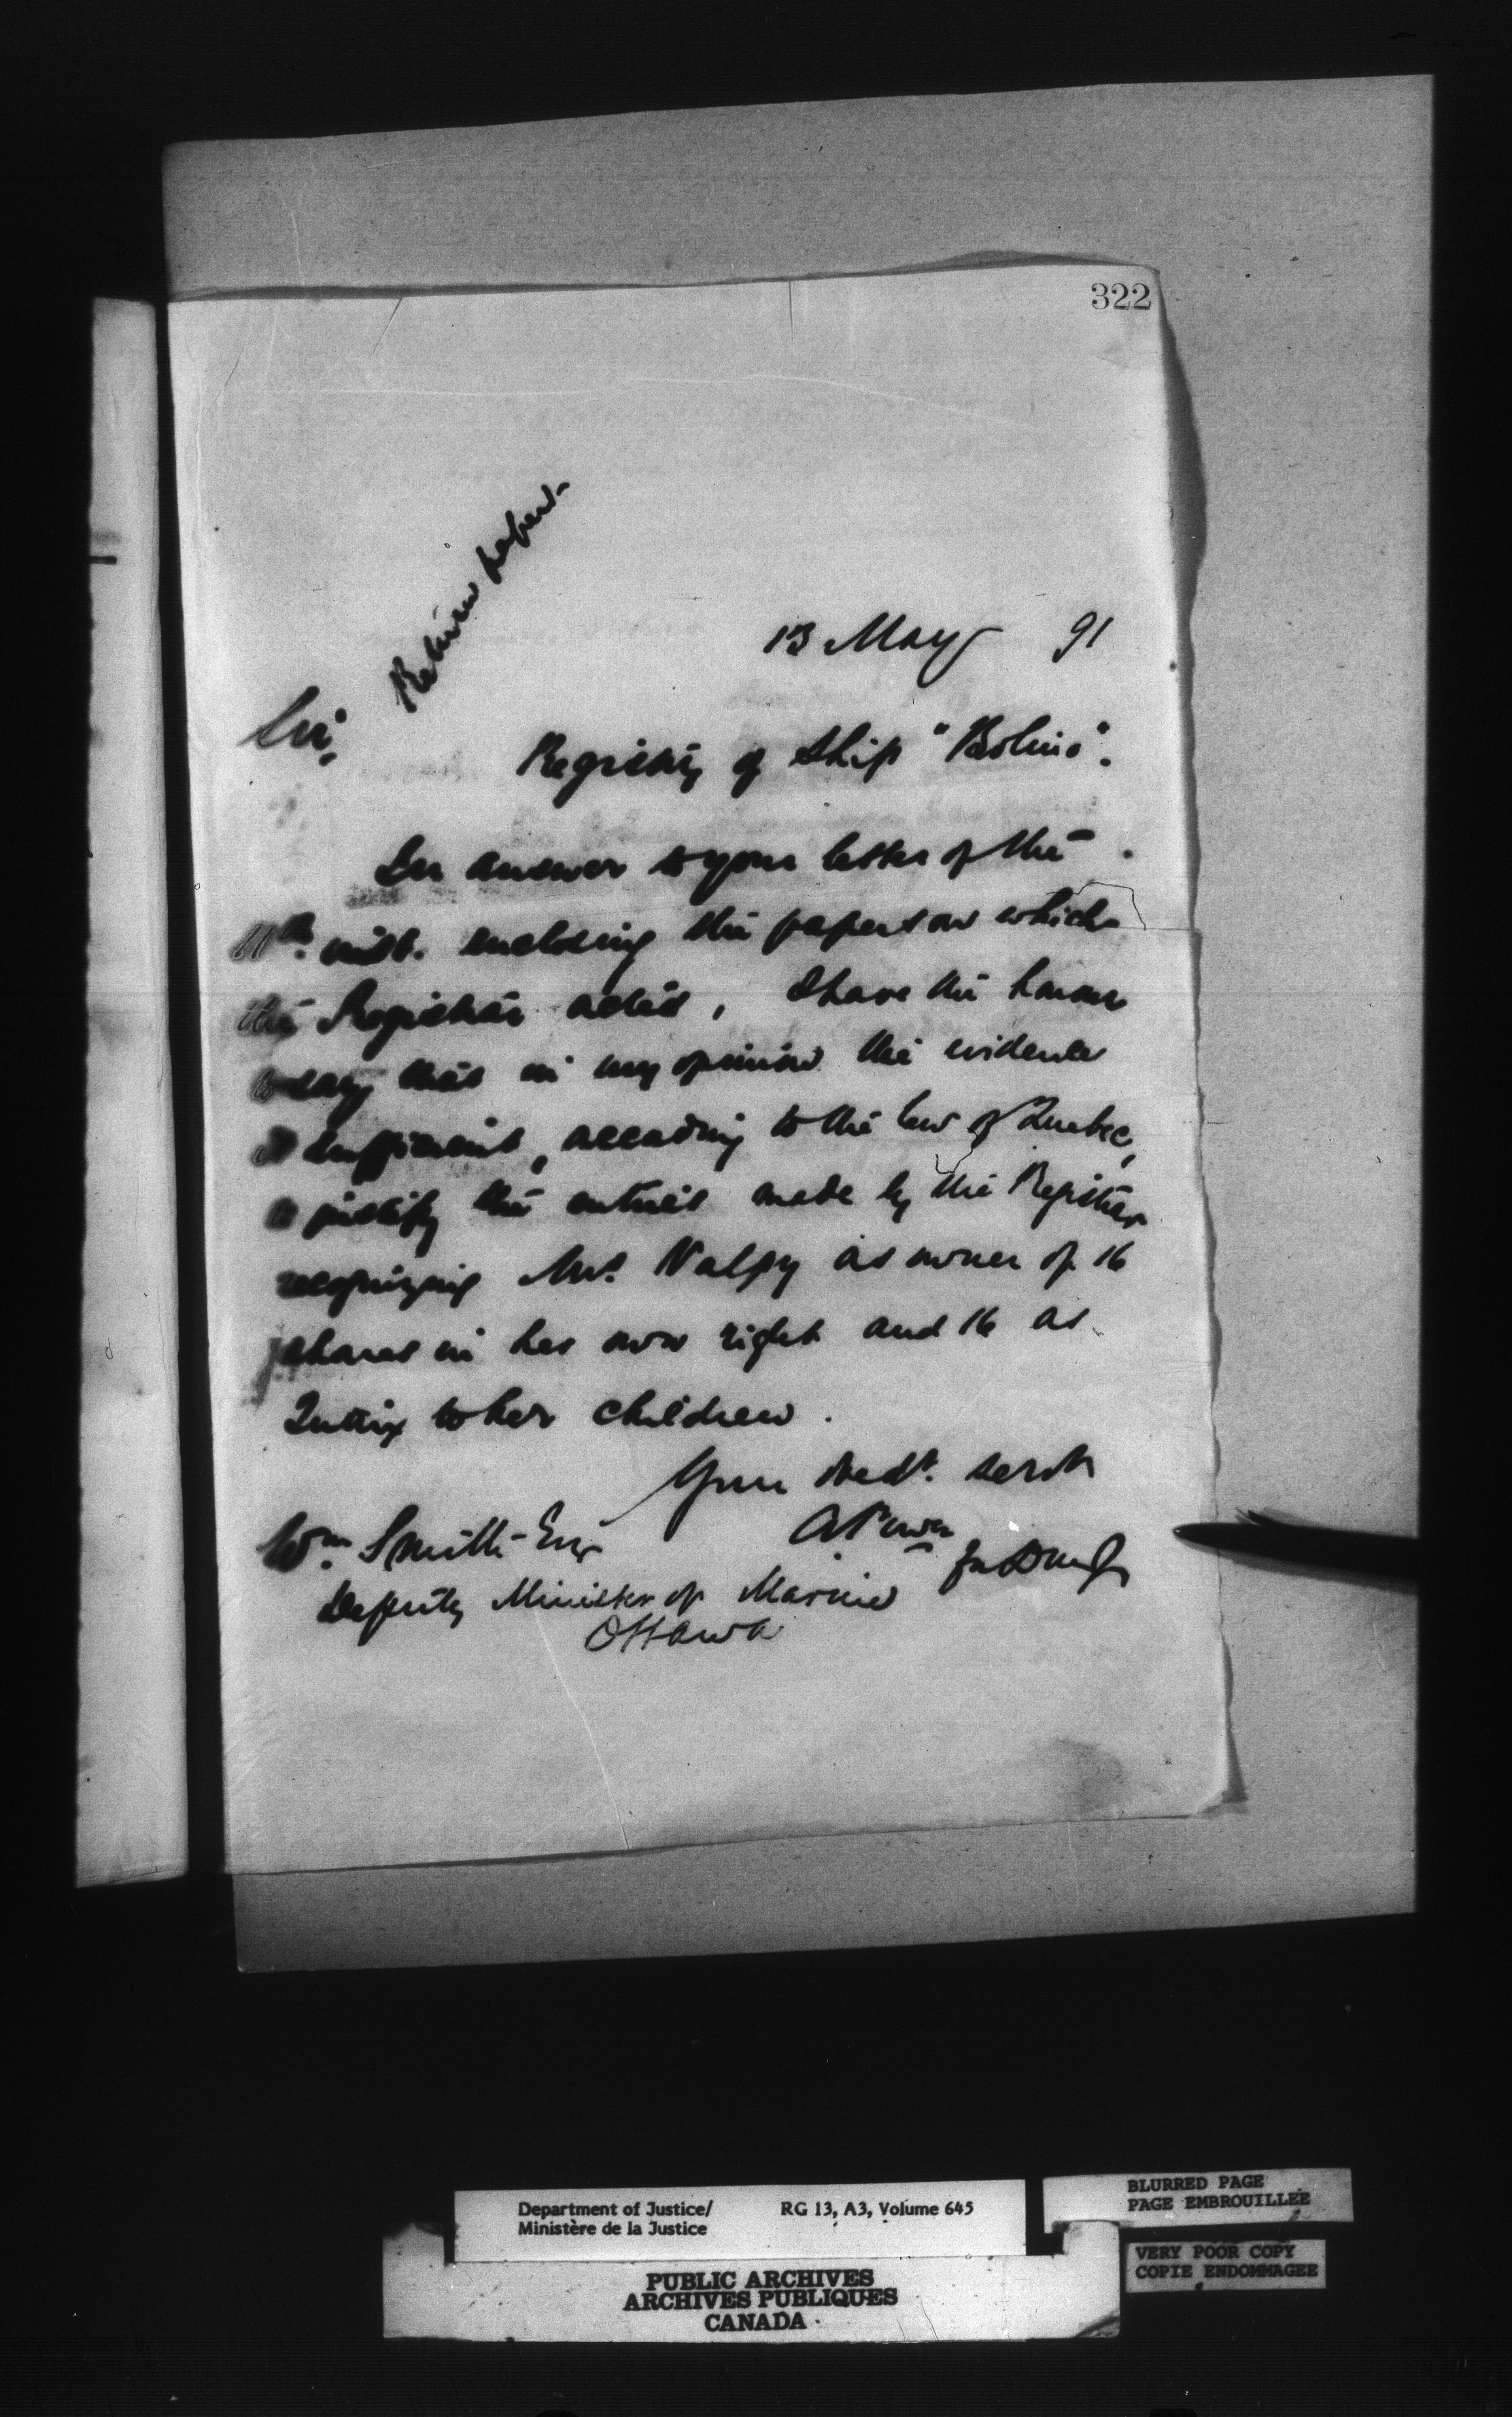 322
Return papers.
13 May 91
Sir,
Registry of Ship "Bolina".
In answer to your letter of the
11th inst. enclosing the papers on which
the Registrar acted, I have the honour
to say that in my opinion the evidence
is sufficient, according to the law of Quebec,
to justify the entries made by the Registrar
recognizing Mrs. Valpy as owner of 16
shares in her own right and 16 as
Tutrix to her children.
Your obedt. servt
A Power
for D M of J
Wm. Smith Esq
Deputy Minister of Marine
Ottawa
Department of Justice/ RG 13, A3, Volume 645
Ministère de la Justice
PUBLIC ARCHIVES
ARCHIVES PUBLIQUES
CANADA
BLURRED PAGE
PAGE EMBROUILLEE
VERY POOR COPY
COPIE ENDOMMAGEE